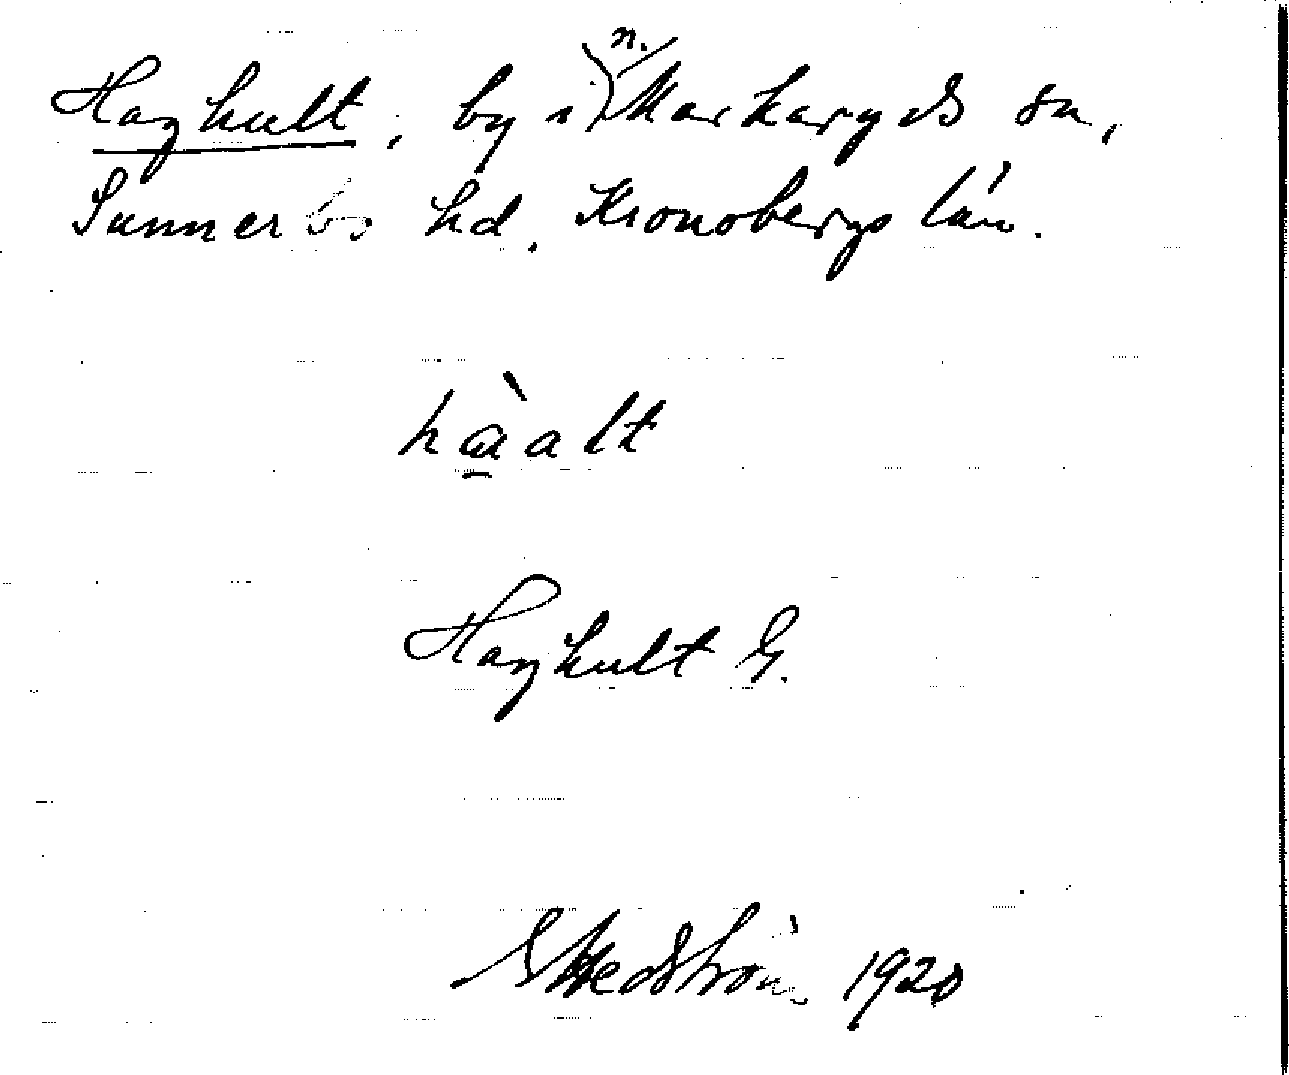 Haghult, by i n. Markaryds sn,
Sunnerbo hd. Kronobergs län.
hàalt
Haghult G.
G Hedström 1920